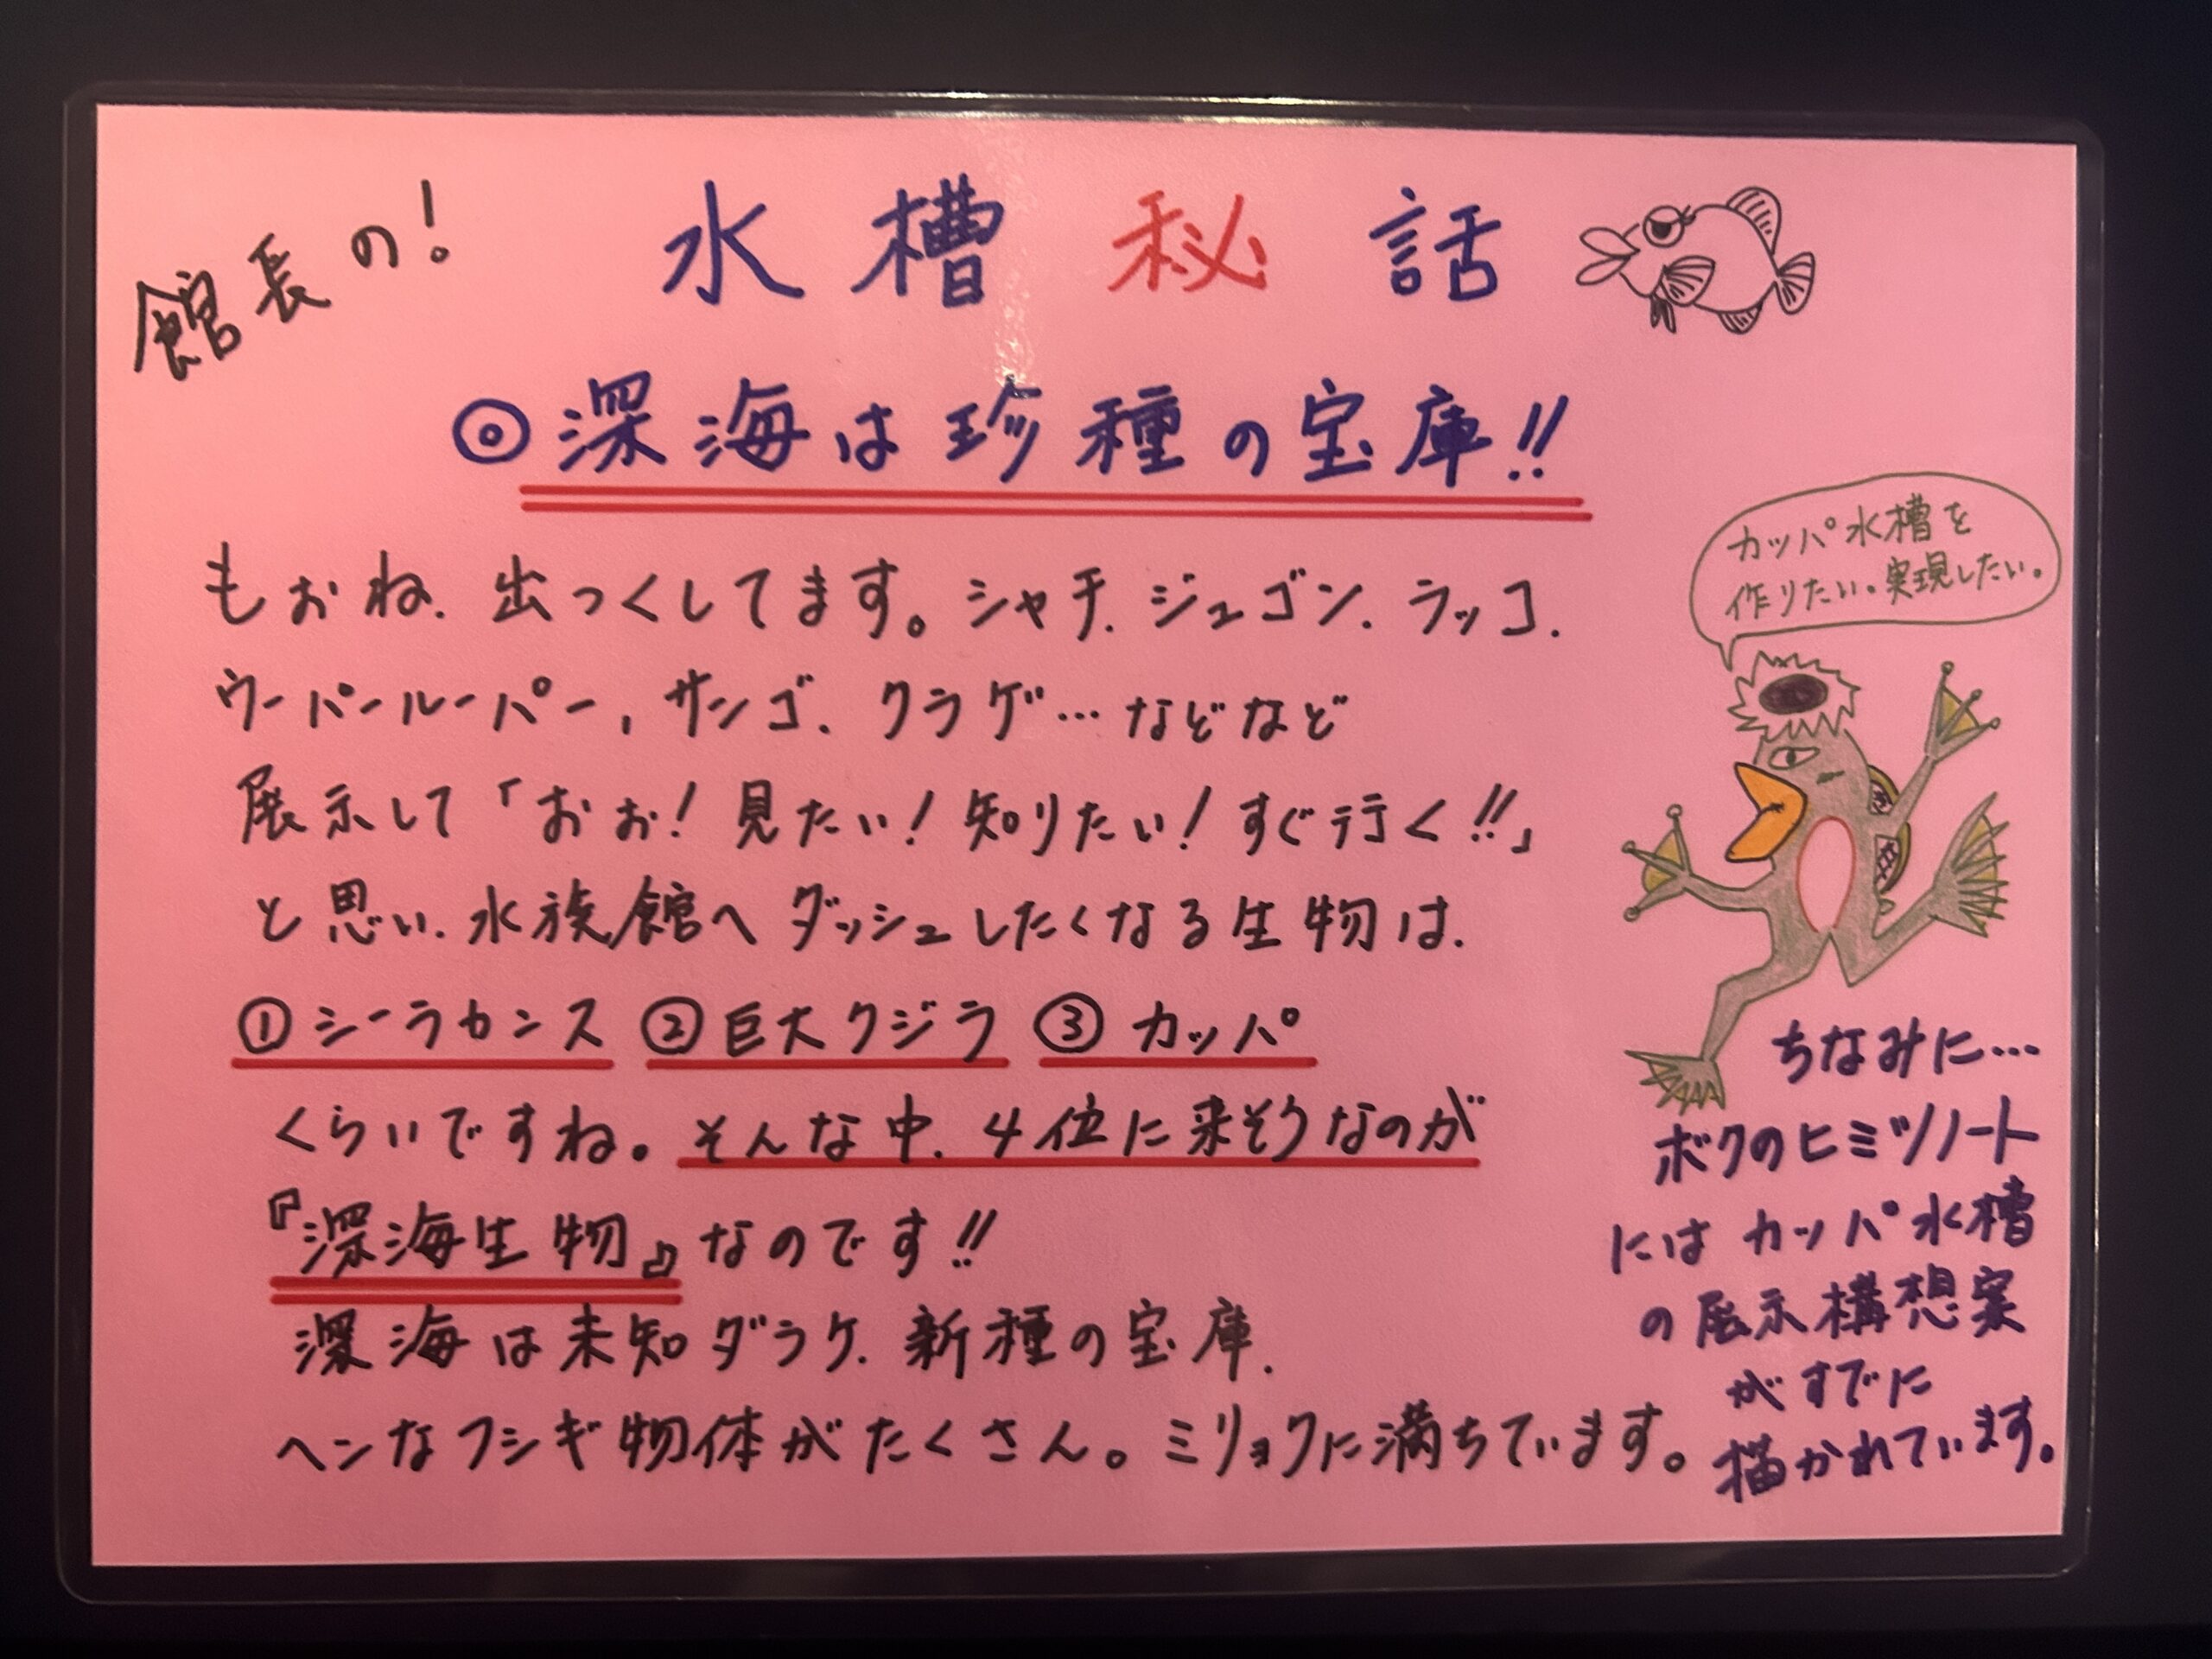 館長の！
水槽秘話
◎深海は珍種の宝庫!!
もおね、出つくしてます。シャチ、ジュゴン、ラッコ、
ウーパールーパー、サンゴ、クラゲ…などなど
展示して「おぉ！見たい！知りたい！すぐ行く!!」
と思い、水族館へダッシュしたくなる生物は、
①シーラカンス ②巨大クジラ ③カッパ
くらいですね。そんな中、4位に来そうなのが
『深海生物』なのです!!
深海は未知ダラケ、新種の宝庫、
ヘンなフシギ物体がたくさん。ミリョクに満ちています。
カッパ水槽を
作りたい。実現したい。
ちなみに…
ボクのヒミツノート
にはカッパ水槽
の展示構想案
がすでに
描かれています。